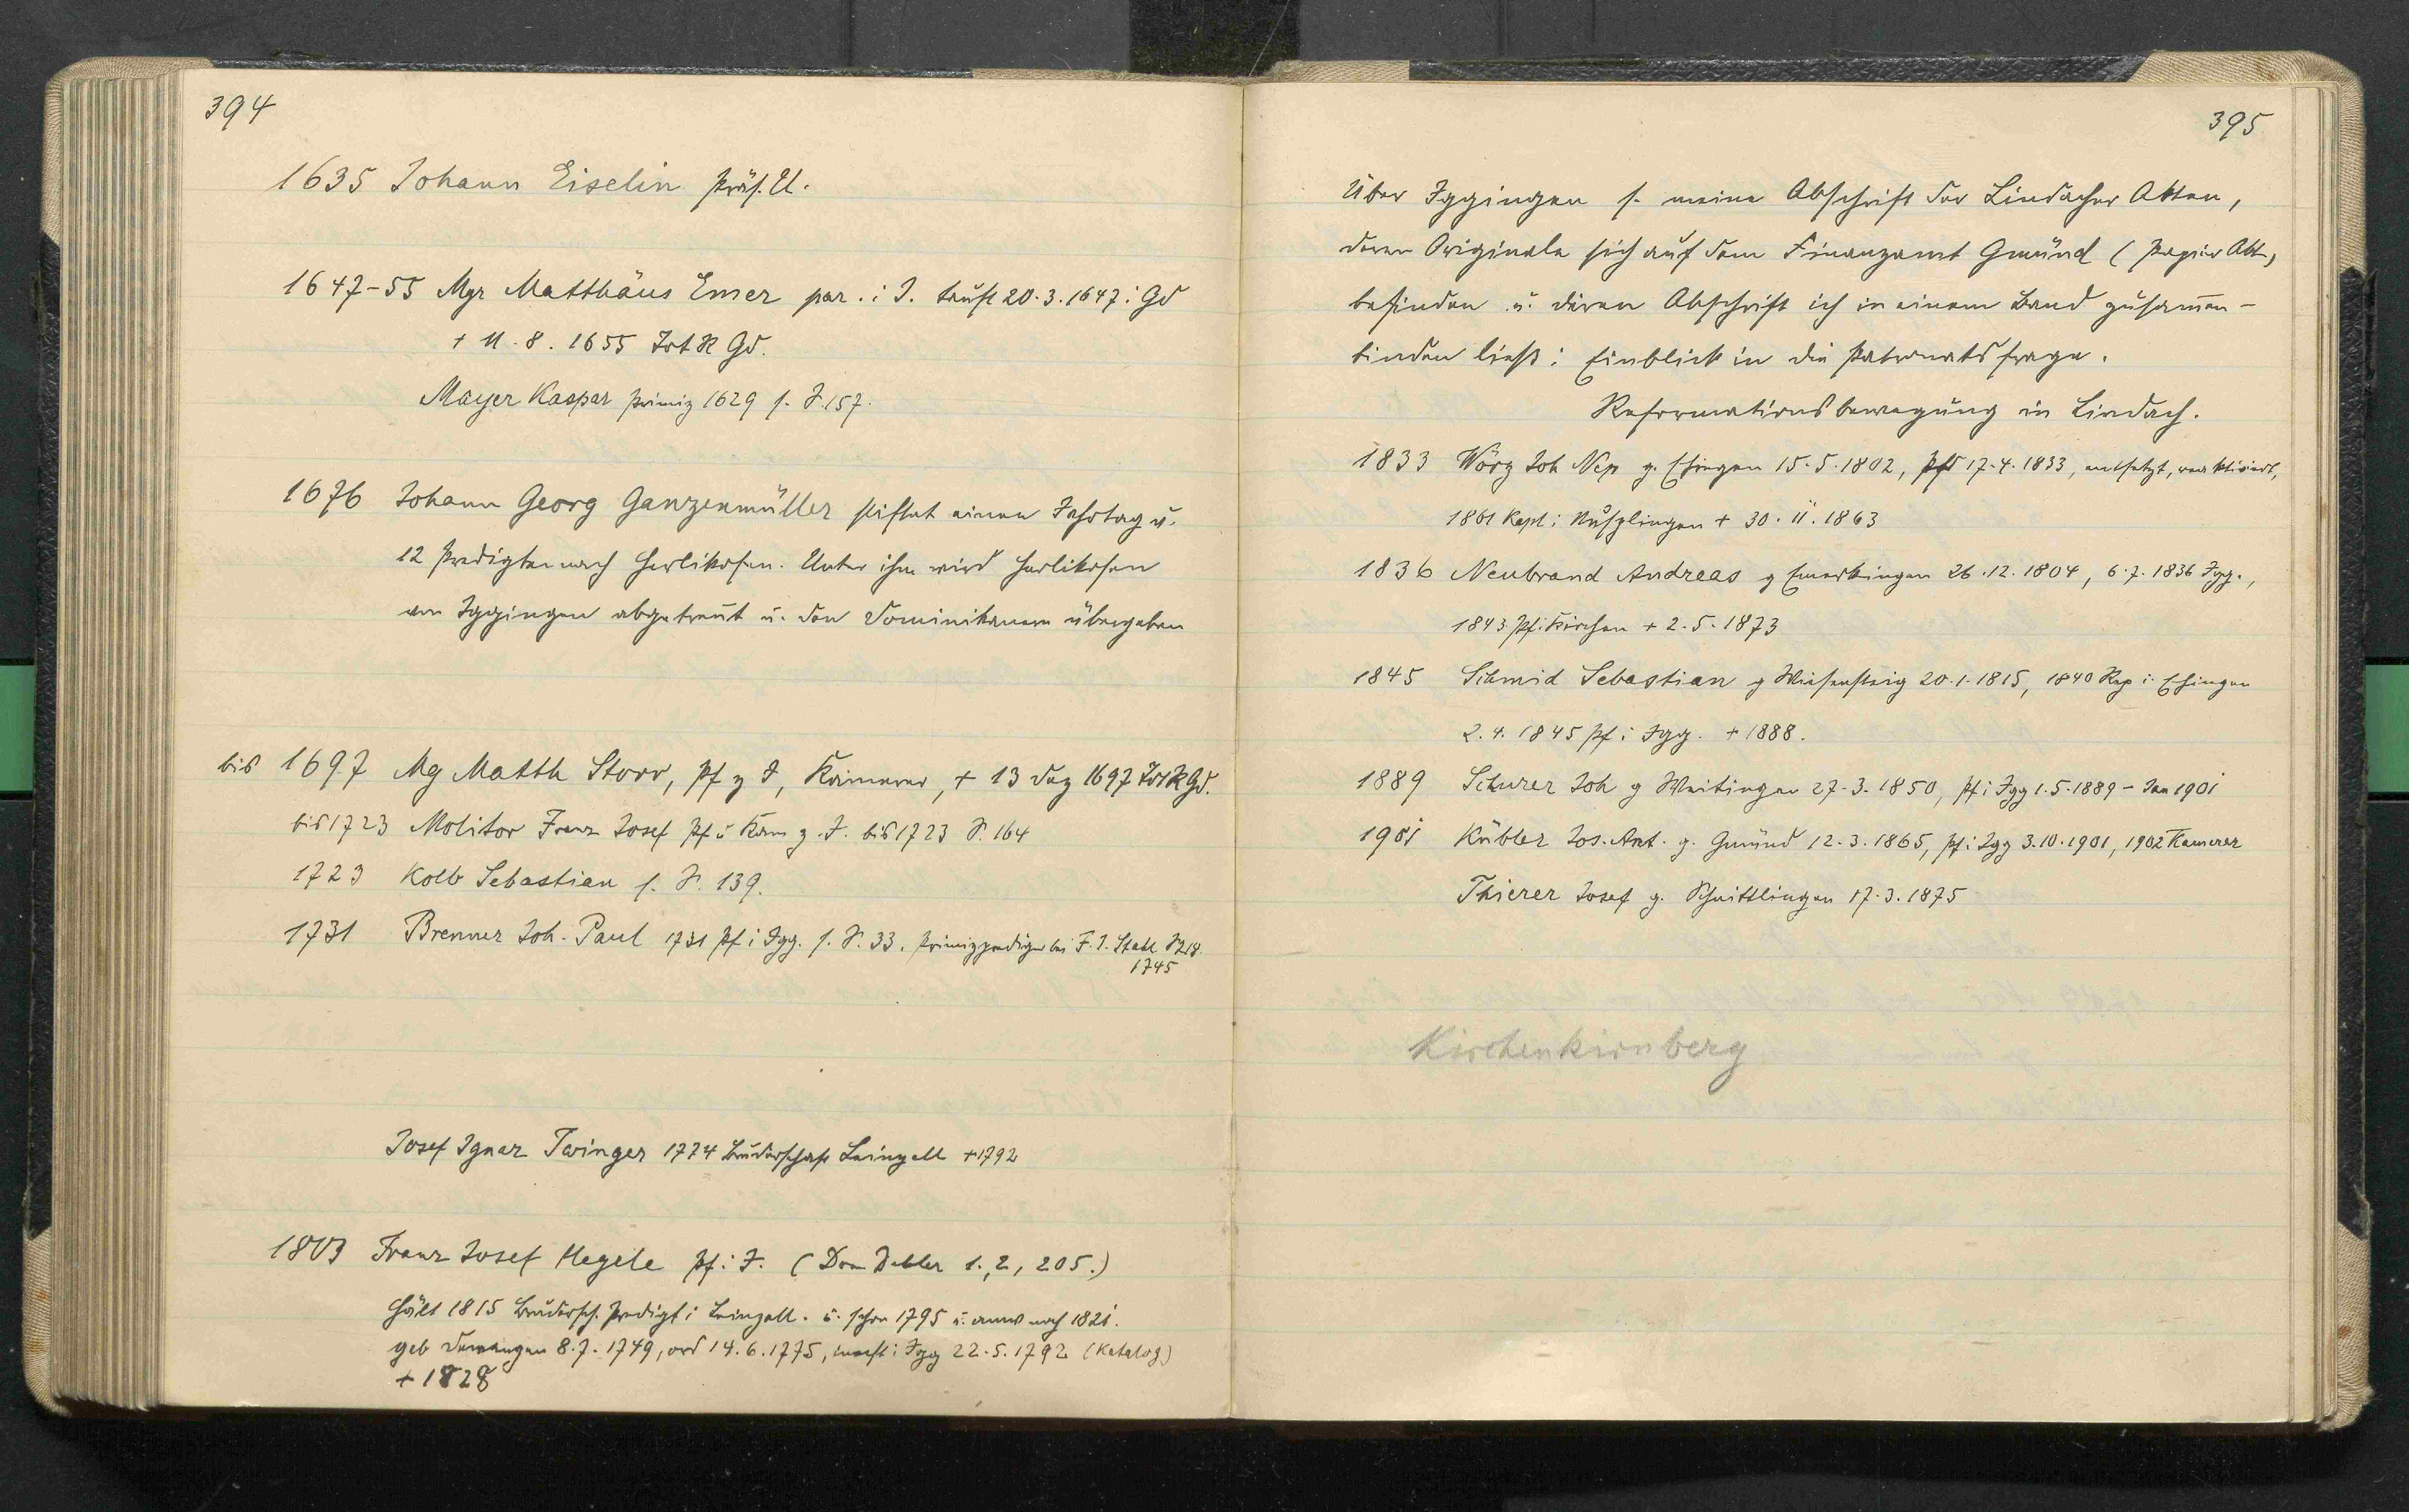 394
1635 Johann Eiselin Präs. U.
1647-55 Mgr Matthäus Emer par. i I. tauft 20.3.1647 i Gd
+ 11.8.1655 Tot R Gd.
Mayer Kaspar Primiz 1629 s. S. 157.
1676 Johann Georg Ganzenmüller stiftet einen Jahrtag u.
12 Predigten nach Herlikofen. Unter ihm wird Herlikofen
von Iggingen abgetrennt u. den Dominikanern übergeben
bis 1697 Mg Matth Storr, Pf z I, Kämerer, + 13 Dez 1697 Tot R Gd.
bis 1723 Molitor Franz Josef Pf u Kam z. I. bis 1723 S. 164
1723 Kolb Sebastian s. S. 139.
1731 Brenner Joh. Paul 1731 Pf i Igg. s. S. 33. Primizprediger bei F. I. Stahl
1745
Josef Ignaz Twinger 1774 Bruderschaft Leinzell +1792
1803 Franz Josef Hegele Pf. i I. (Dom Debler 1.,2, 205.)
Hält 1815 Brudersch. Predigt i Leinzell. u. schon 1795 u. noch 1821.
geb Dewangen 8.7.1749, ord 14.6.1775, invest i Igg 22.5.1792 (Katalog)
+ 1828
395
Über Iggingen s. meine Abschrift der Lindacher Akten,
deren Originale sich auf dem Finanzamt Gmünd (Papier Akt.)
befinden u. deren Abschrift ich in einem Band zusam̄en-
binden ließ: Einblick in die Patronatsfrage.
Reformationsbewegung in Lindach.
1833 Wörz Joh Nep g. Ehingen 15.5.1802, Pf 17.4.1833, entsetzt,
1861 Kapl i Nusplingen + 30.11.1863
1836 Neubrand Andreas g Emerkingen 26.12.1804, 6.7.1836 Igg.,
1843 Pf i Kirchen + 2.5.1873
1845 Schmid Sebastian g Wiesensteig 20.1.1815, 1840 Rep i Ehingen
2.4.1845 Pf i Igg. + 1888.
1889 Schurer Joh g Weitingen 27.3.1850, Pf i Igg 1.5.1889 - Jan 1901
1901 Kübler Jos. Ant. g. Gmünd 12.3.1865, Pf i Igg 3.10.1901, 1902 Kamerer
Thierer Josef g. Schnittlingen 17.3.1875
Kirchenkirnberg